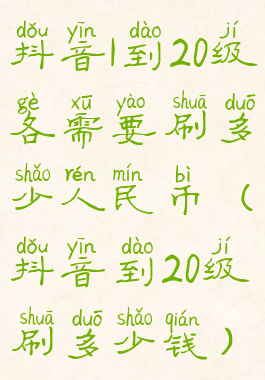 dǒu yīn dào jí
抖音1到20级
gè xū yào shuā duō
各需要刷多
shǎo rén mín bì
少人民币（
dǒu yīn dào jí
抖音到20级
shuā duō shǎo qián
刷多少钱）